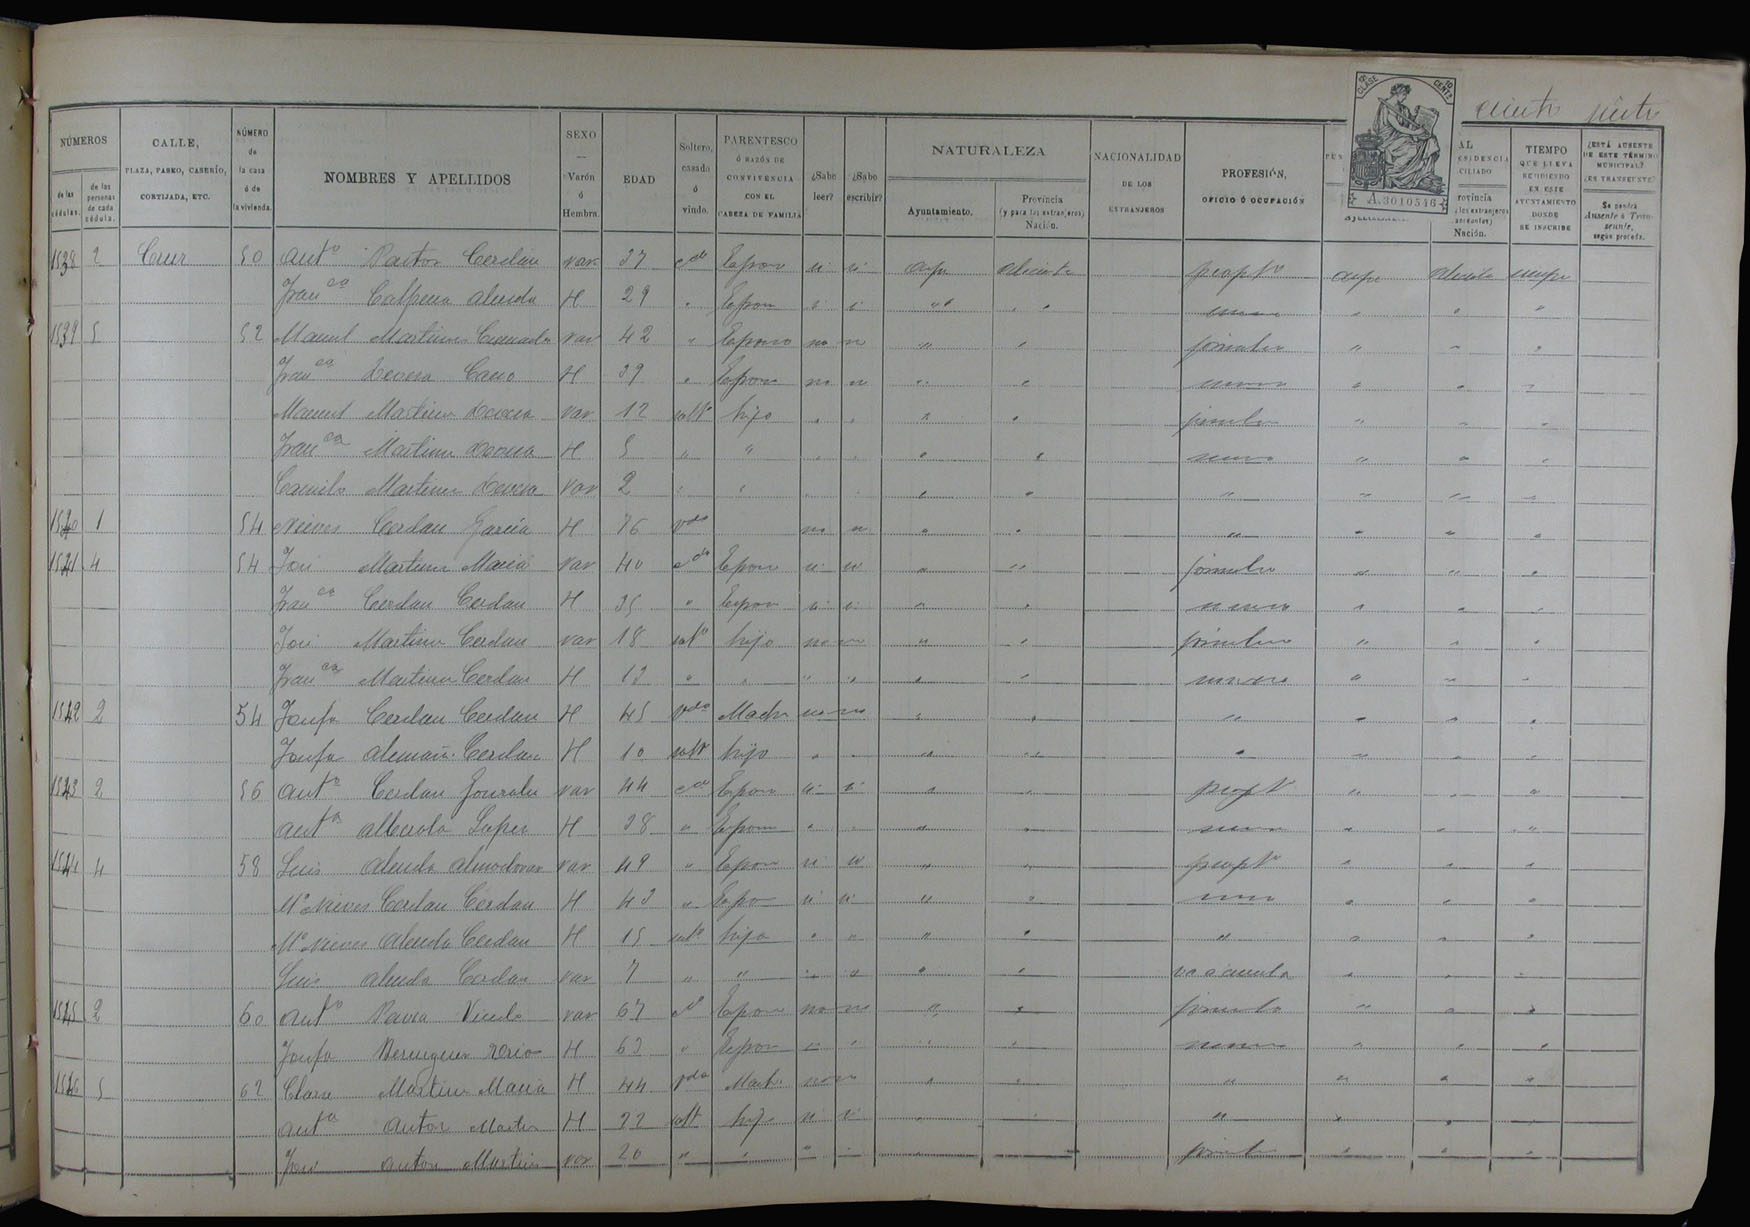 ciento siete
8ª CLASE 10 CENTS
A.3010546
NÚMEROS
de las cédulas.
de las personas de cada cédula.
CALLE,
PLAZA, PASEO, CASERÍO,
CORTIJADA, ETC.
NÚMERO
de
la casa
ó de
la vivienda.
NOMBRES Y APELLIDOS
SEXO
—
Varón
ó
Hembra.
EDAD
Soltero,
casado
ó
viudo.
PARENTESCO
Ó RAZÓN DE
CONVIVENCIA
CON EL
CABEZA DE FAMILIA
¿Sabe leer?
¿Sabe escribir?
NATURALEZA
Ayuntamiento.
Provincia
(y para los extranjeros)
Nación.
NACIONALIDAD
DE LOS
EXTRANJEROS
PROFESIÓN,
OFICIO Ó OCUPACIÓN
AL
ESIDENCIA
CILIADO
rovincia
Nación.
TIEMPO
QUE LLEVA
RESIDIENDO
EN ESTE
AYUNTAMIENTO
DONDE
SE INSCRIBE
¿ESTÁ AUSENTE
DE ESTE TÉRMINO
MUNICIPAL?
¿ES TRANSEUNTE?
Se pondrá
Ausente ó Transeunte,
según proceda.
1538 2 Cruz 50 Antº Pastor Cerdan var 37 cdo Esposo si si aspe alicante proptº aspe alicante siempre
Franca Calpena Alenda H 29 " Esposa si si " " " " "
1539 5 52 Manuel Martinez var 42 " Esposo no no " " jornalero " " "
Franca Devesa Cano H 39 " Esposa no no " " " " "
Manuel Martinez Devesa var 12 soltº hijo " " " " jornalero " " "
Franca Martinez Devesa H 5 " " " " " " " " "
Camilo Martinez Devesa var 2 " " " " " " " " " "
1540 1 54 Nieves Cerdan Garcia H 76 vda no no " " " " " "
1541 4 54 José Martinez Macia var 40 cdo Esposo si si " " jornalero " " "
Franca Cerdan Cerdan H 35 " Esposa si si " " " " "
José Martinez Cerdan var 18 soltº hijo no no " " jornalero " " "
Franca Martinez Cerdan H 13 " " " " " " " " "
1542 2 54 Josefa Cerdan Cerdan H 45 vda Madre no no " " " " " "
Josefa Alemañ Cerdan H 10 solt hijo " " " " " " " "
1543 2 56 Antº Cerdan Gonzalez var 44 cdo Esposo si si " " propº " " "
Antª Alberola Lopez H 38 " Esposa " " " " " " "
1544 4 58 Luis Alenda Almodovar var 49 " Esposo si si " " proptº " " "
Mª Nieves Cerdan Cerdan H 43 " Espo si si " " " " "
Mª Nieves Alenda Cerdan H 15 soltº hija " " " " " " " "
Luis Alenda Cerdan var 7 " " " " " " va a escuela " " "
1545 2 60 Antº Pavia var 67 cdo Esposo no no " " jornalero " " "
Josefa Berenguer H 63 " Esposa " " " " " " "
1546 5 62 Clara Martinez Macia H 44 vda Madre no no " " " " " "
Antª Anton Martinez H 22 solt hijo si si " " " " " "
José Anton Martinez var 20 " " " " " " jornalero " " "